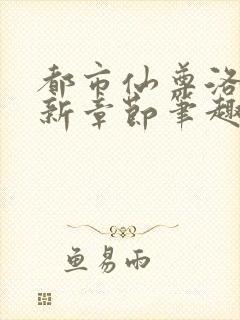 都市仙尊洛
新章节笔趣
鱼易雨